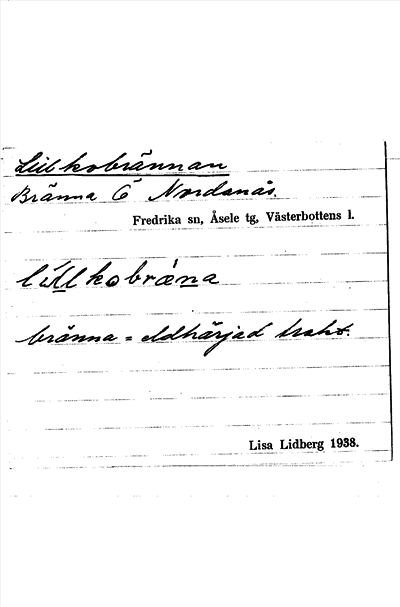 Lill kobrännan
Bränna Ö Nordanås.
Fredrika sn, Åsele tg, Västerbottens l.
lillkobræ̀na
bränna = eldhärjad trakt.
Lisa Lidberg 1938.